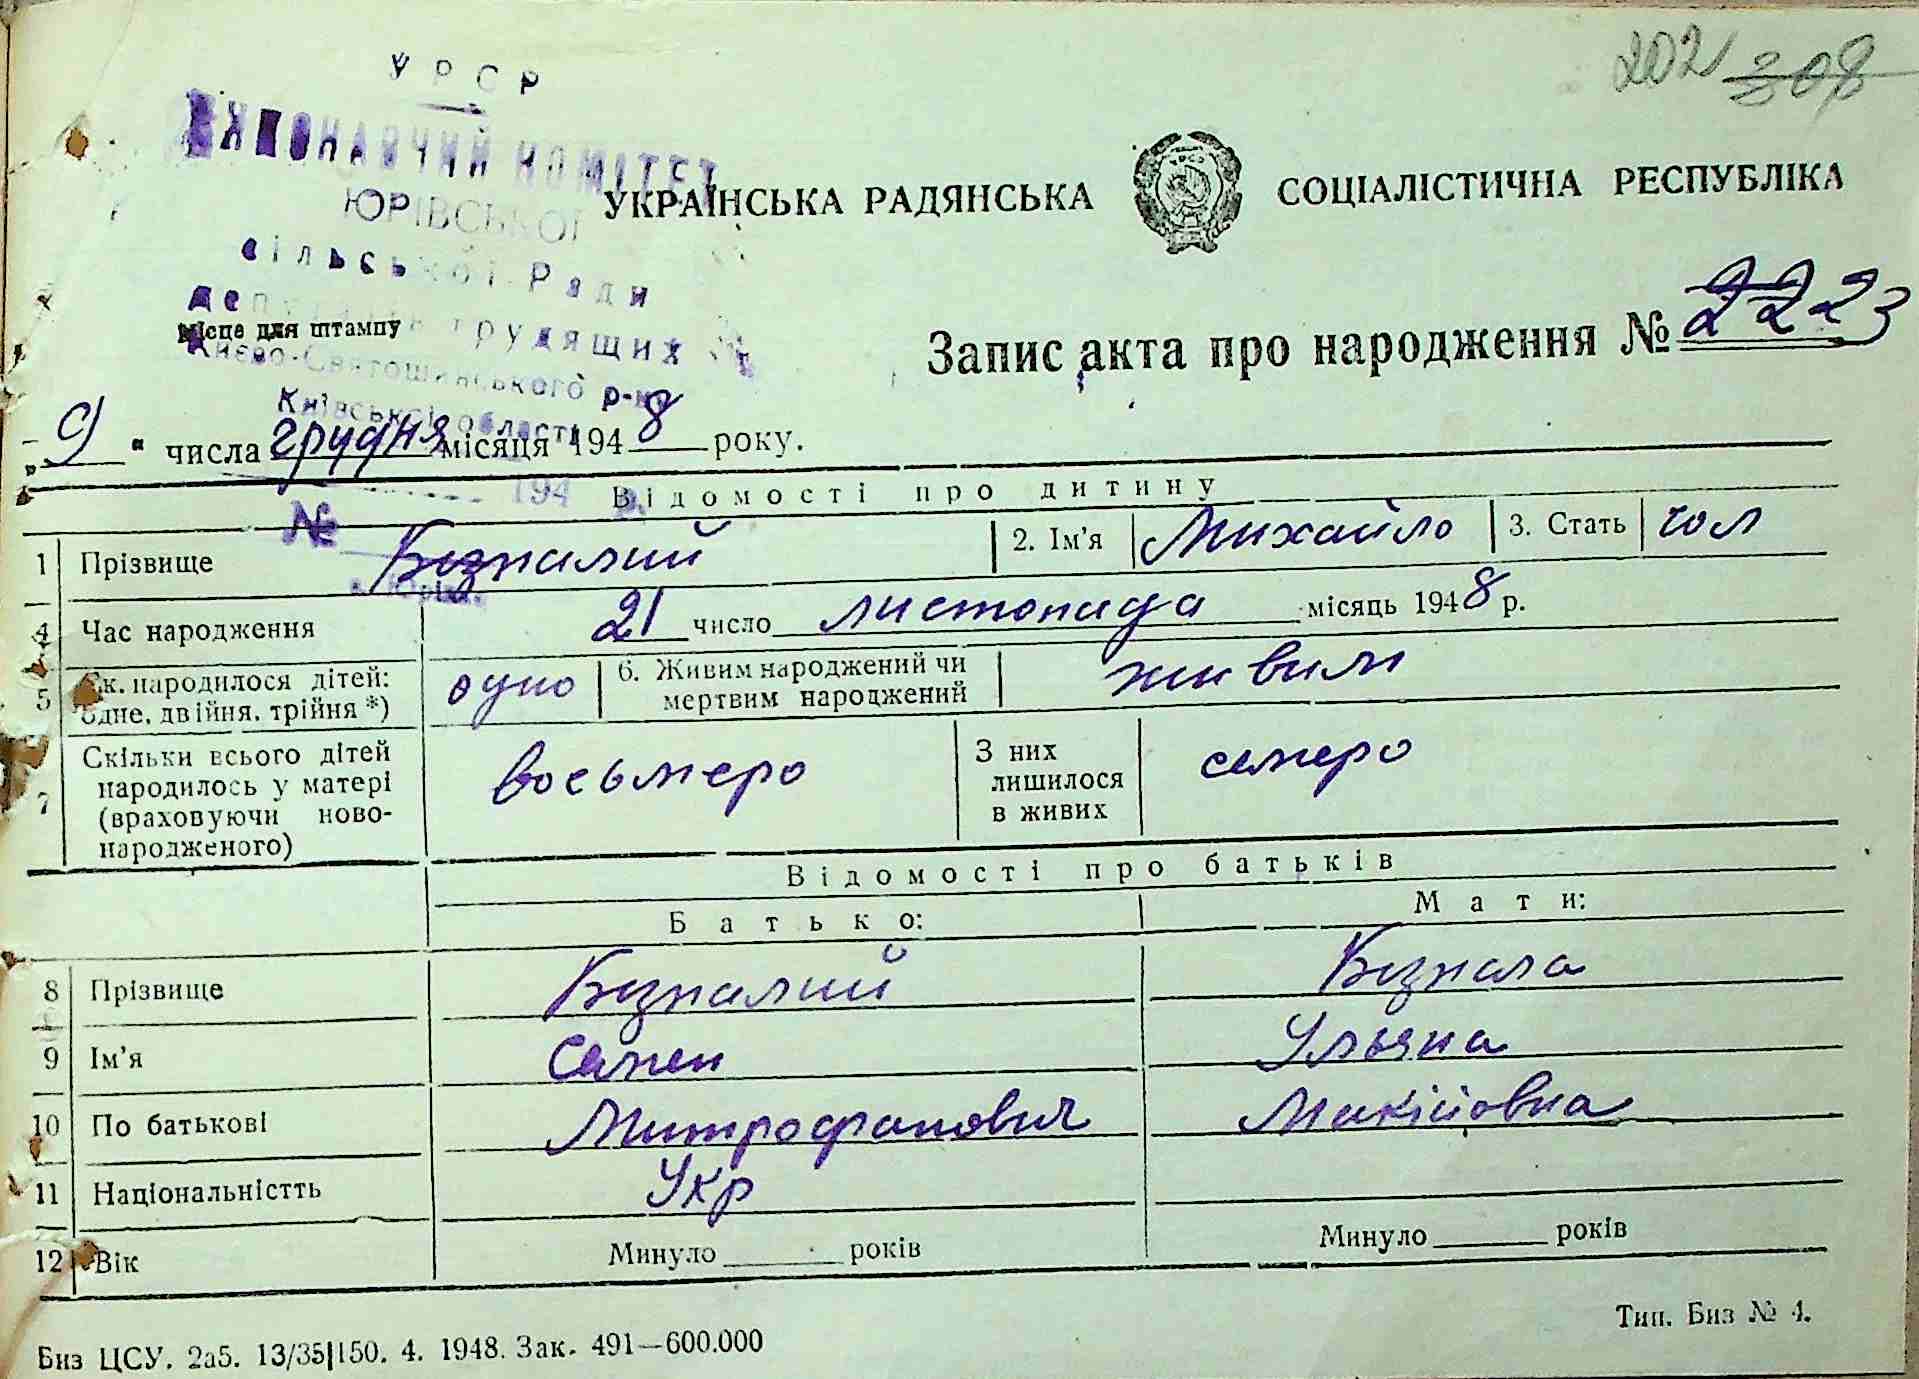 202 308
УРСР
ВИКОНАВЧИЙ КОМІТЕТ
ЮРІВСЬКОЇ
сільської Ради
депутатів трудящих
Києво-Святошинського р-ну
Київської області
194 р.
№
УКРАЇНСЬКА РАДЯНСЬКА СОЦІАЛІСТИЧНА РЕСПУБЛІКА
Місце для штампу
Запис акта про народження №
„9“ числа грудня місяця 1948 року.
Відомості про дитину
1 Прізвище Безпалий 2. Ім'я Михайло 3. Стать чол
4 Час народження 21 число листопада місяць 1948 р.
5 Ск. народилося дітей: одне, двійня, трійня *) одно 6. Живим народжений чи мертвим народжений живим
7 Скільки всього дітей народилось у матері (враховуючи ново-народженого) восьмеро З них лишилося в живих семеро
Відомості про батьків
Батько: Мати:
8 Прізвище Безпалий Безпала
9 Ім'я Семен Ульяна
10 По батькові Митрофанович Макійовна
11 Національністть Укр
12 Вік Минуло ____ років Минуло ____ років
Тип. Биз № 4.
Биз ЦСУ. 2а5. 13/35|150. 4. 1948. Зак. 491—600.000